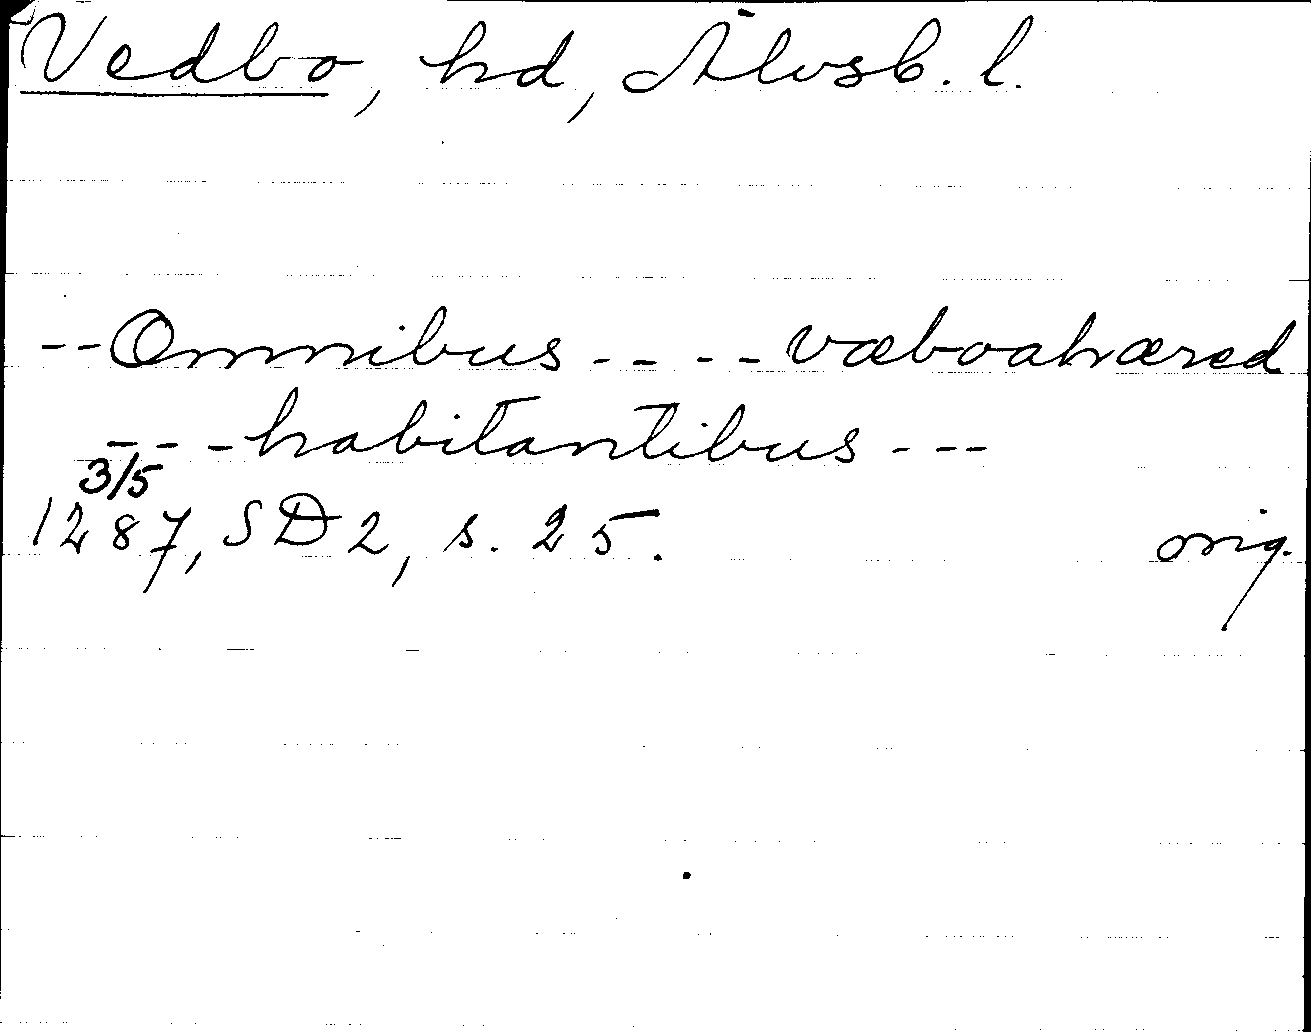 Vedbo, hd, Älvsb. l.
--Omnibus ---- væboahæred
--- habitantibus ---
3/5
1287, SD 2, s. 25. orig.